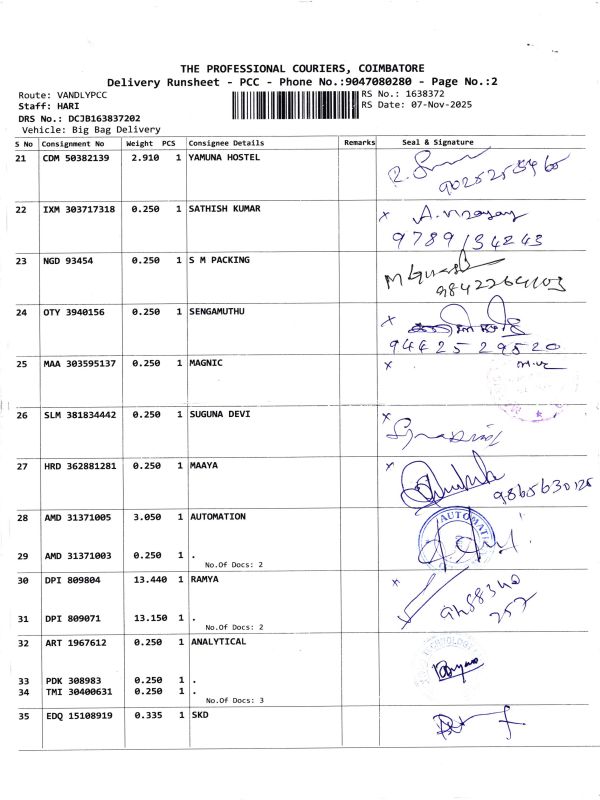 THE PROFESSIONAL COURIERS, COIMBATORE
Delivery Runsheet - PCC - Phone No.:9047080280 - Page No.:2
Route: VANDLYPCC
RS No.: 1638372
Staff: HARI
RS Date: 07-Nov-2025
DRS No.: DCJB163837202
Vehicle: Big Bag Delivery
S No Consignment No Weight PCS Consignee Details Remarks Seal & Signature
21 CDM 50382139 2.910 1 YAMUNA HOSTEL
22 IXM 303717318 0.250 1 SATHISH KUMAR
9789134243
23 NGD 93454 0.250 1 S M PACKING
24 OTY 3940156 0.250 1 SENGAMUTHU
9442529520
25 MAA 303595137 0.250 1 MAGNIC
26 SLM 381834442 0.250 1 SUGUNA DEVI
27 HRD 362881281 0.250 1 MAAYA
9865630125
28 AMD 31371005 3.050 1 AUTOMATION
AUTOMATI
29 AMD 31371003 0.250 1 .
No.Of Docs: 2
30 DPI 809804 13.440 1 RAMYA
31 DPI 809071 13.150 1 .
No.Of Docs: 2
32 ART 1967612 0.250 1 ANALYTICAL
33 PDK 308983 0.250 1 .
34 TMI 30400631 0.250 1 .
No.Of Docs: 3
35 EDQ 15108919 0.335 1 SKD